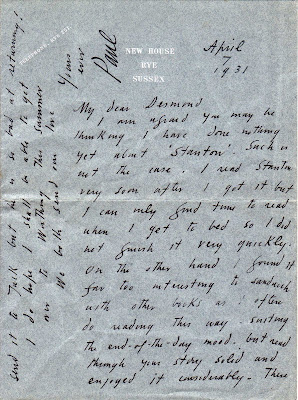 TELEPHONE: RYE
NEW HOUSE
RYE
SUSSEX
April
7
1931
My dear Desmond
I am afraid you may be
thinking I have done nothing
yet about 'Stanton'. Such is
not the case. I read Stanton
very soon after I got it but
I can only find time to read
when I got to bed, so I did
not finish it very quickly.
On the other hand, I found it
far too interesting to sandwich
with other books as I often
do reading this way, suiting
the end-of-the-day mood, but read
through your story solid and
enjoyed it considerably. There
send it to Jack but he is so bad at returning!
I do hope I shall be able to get
over to Watling this summer
We both send our love
Yours
ever
Paul